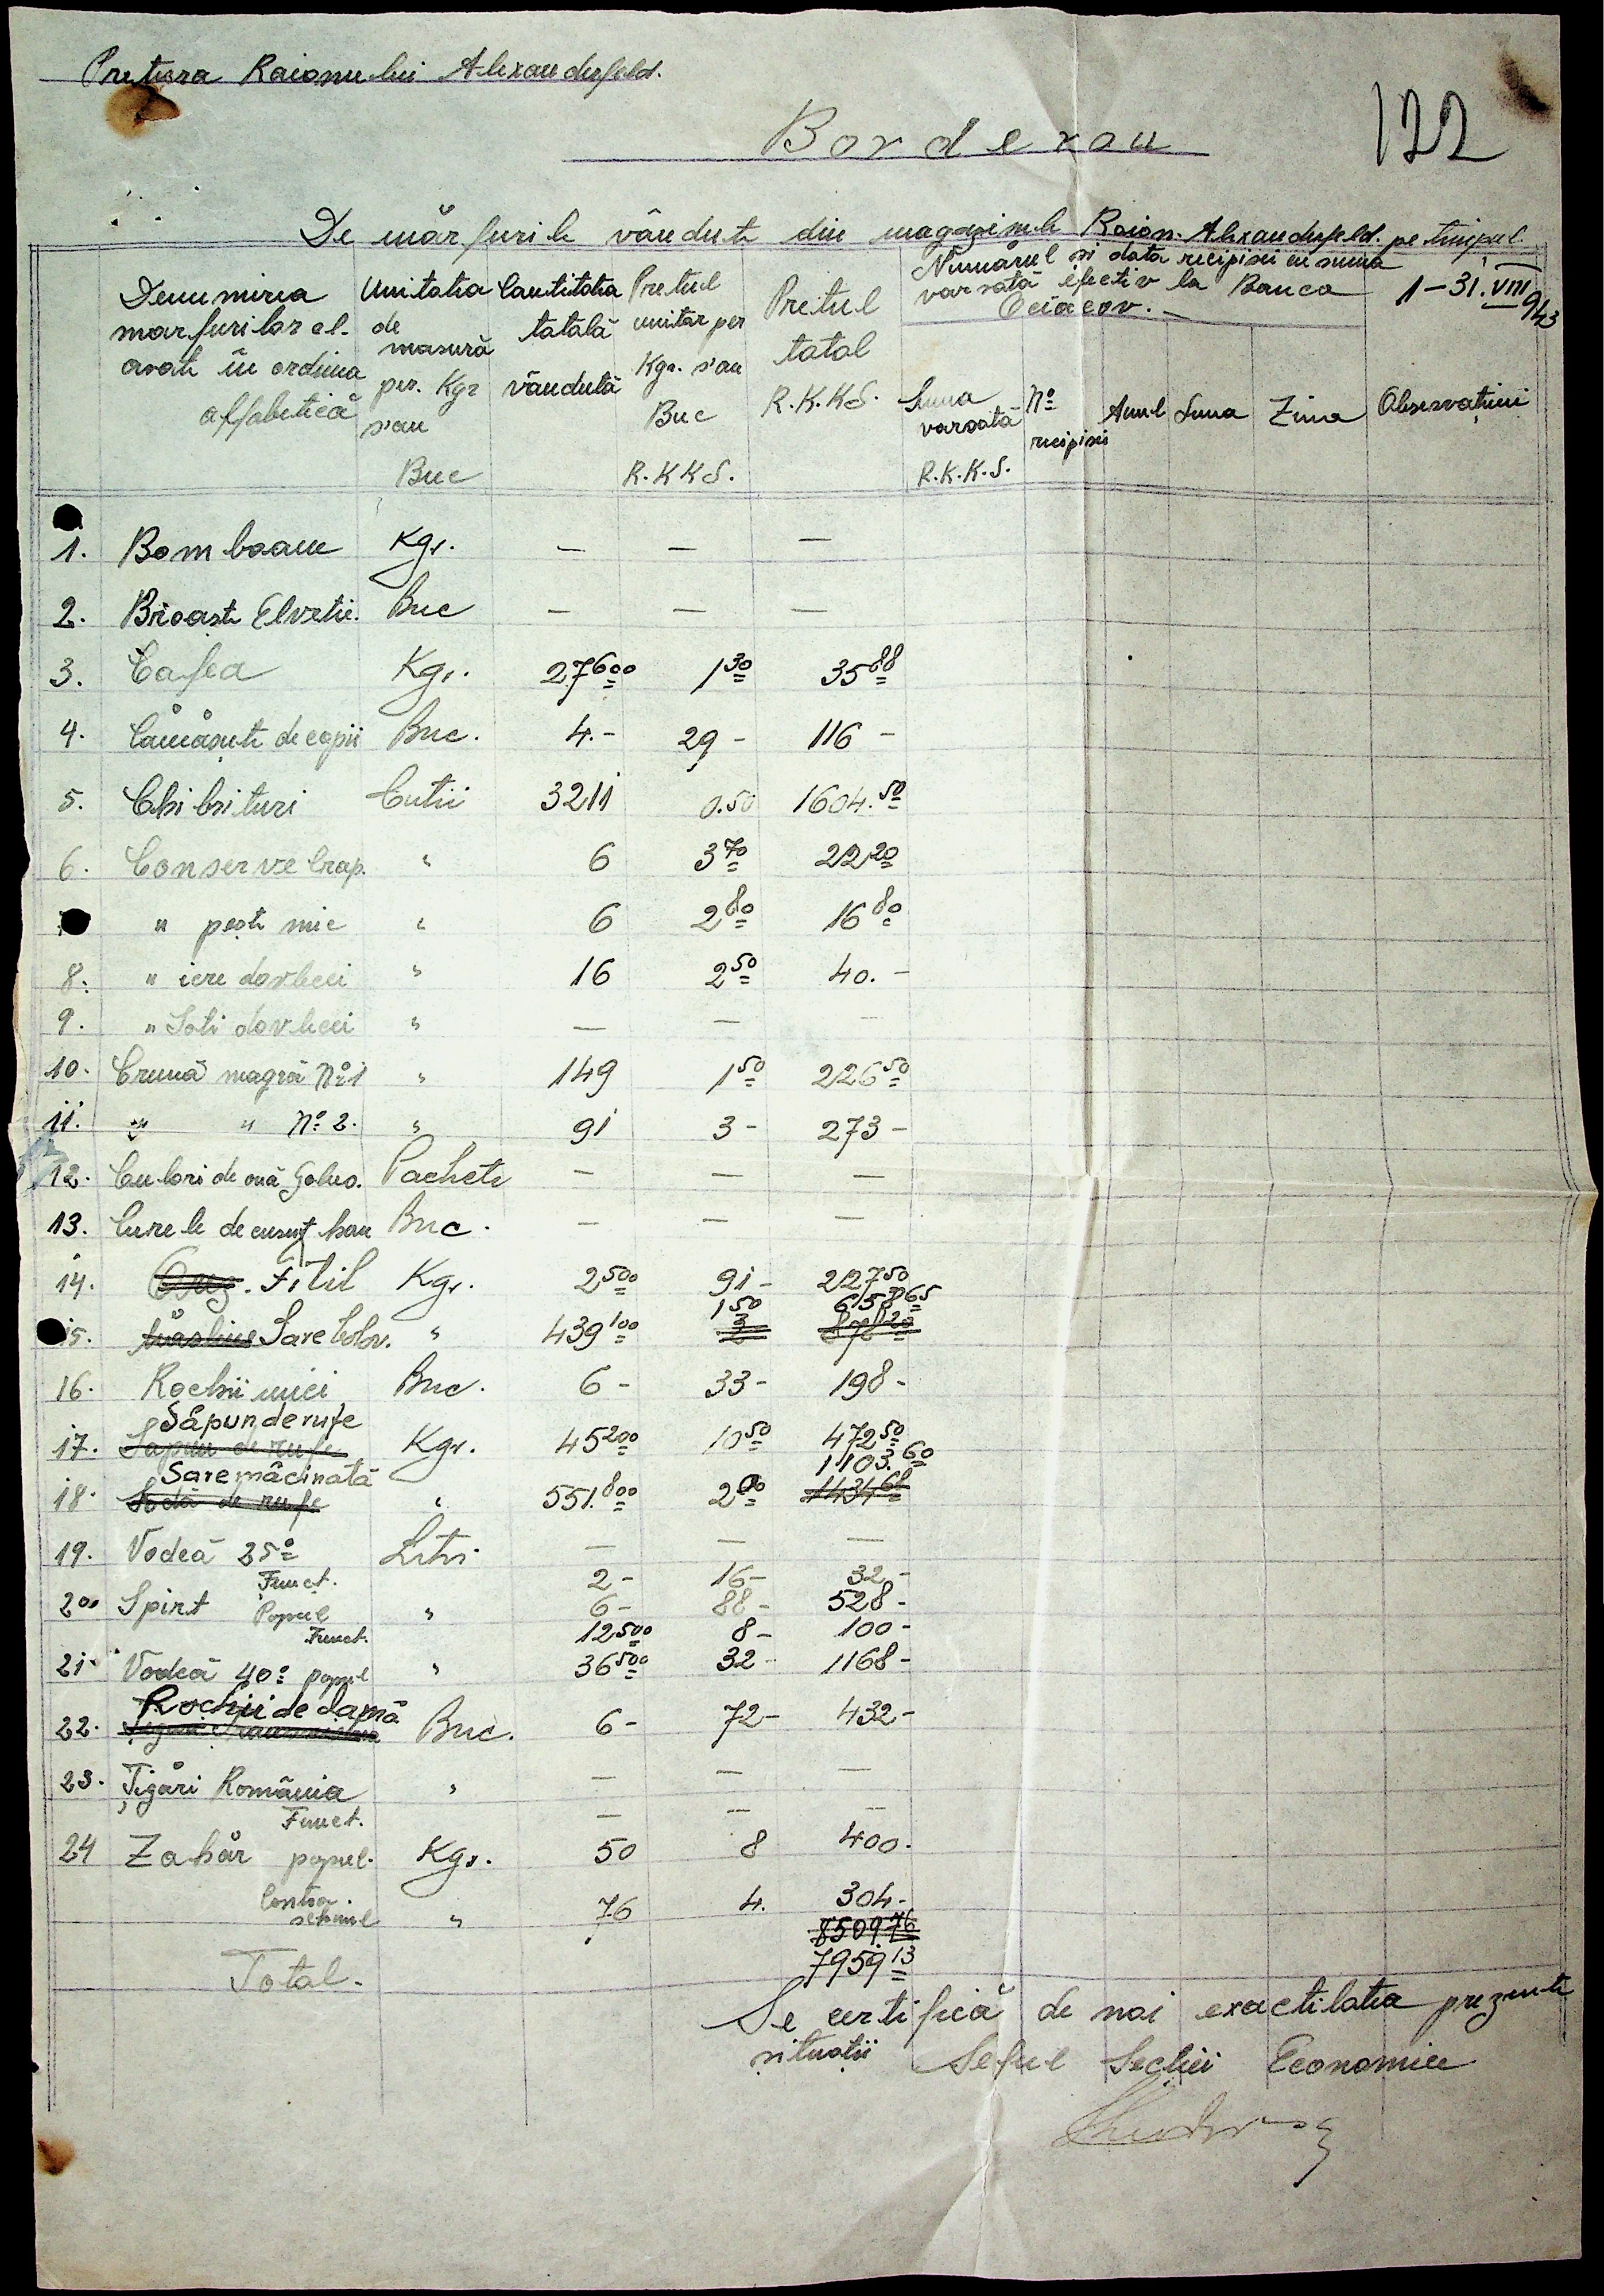 Pretura Raionului Alexanderfeld.
122
Borderou
De mărfurile vândute din magazinele Raion. Alexanderfeld. pe timpul
1-31.VIII 943
Denumirea mărfurilor al- Unitatea de Cantitatea Pretul unitar per Pretul Numărul si data recipisei cu suma
varsată efectiv la Banca Oceacov.-
asate în ordinea alfabetică masură per. Kgr s'au Buc totală vândută Kgr. s'au Buc R.K.K.S. total R.K.K.S. Suma varsată R.K.K.S. No recipisii Anul Luna Ziua Observațiuni
1. Bomboane Kgr. — — —
2. Broaste Elvetie. Buc — — —
3. Cafea Kgr. 27600 1 30 35 88
4. Cămăsute de copii Buc. 4.- 29- 116-
5. Chibrituri Cutii 3211 0.50 1604.50
6. Conserve Crap. " 6 3 70 22 20
" peste mic " 6 2 80 16 80
8. " icre dovlecei " 16 2 50 40.-
9. " Soti dovlecei " — — —
10. Cremă neagră No 1 " 149 1 50 226 50
11. " " No 2. " 91 3- 273-
12. Culori de ouă Galus. Pachete — — —
13. Curele de cusut Buc. — — —
14. Fitil Kgr. 2 500 91- 227 50
15. Sare bolov. " 439 100 1 50 658 65
3 878 20
16. Rochii mici Buc. 6- 33- 198-
Săpun de rufe
17. Sapun de rufe Kgr. 45 200 10 50 472 50
Sare măcinată 1103.60
18. Sodă de rufe " 551.800 2 00 1434 68
19. Vodcă 25° Litri — — —
Funct. 2- 16- 32-
20 Spirt Popul " 6- 88- 528-
Funct. 12 500 8- 100-
21 Vodcă 40° popul " 36 500 32- 1168-
Rochii de damă
22. Buc. 6- 72- 432-
23. Țigări România " — — —
Funct. — — —
24 Zahăr popul. Kgr. 50 8 400.
Contra
schimb " 76 4. 304-
8509 76
Total. 7959 13
Se certifică de noi exactitatea prezentei
situații Seful Sectiei Economice